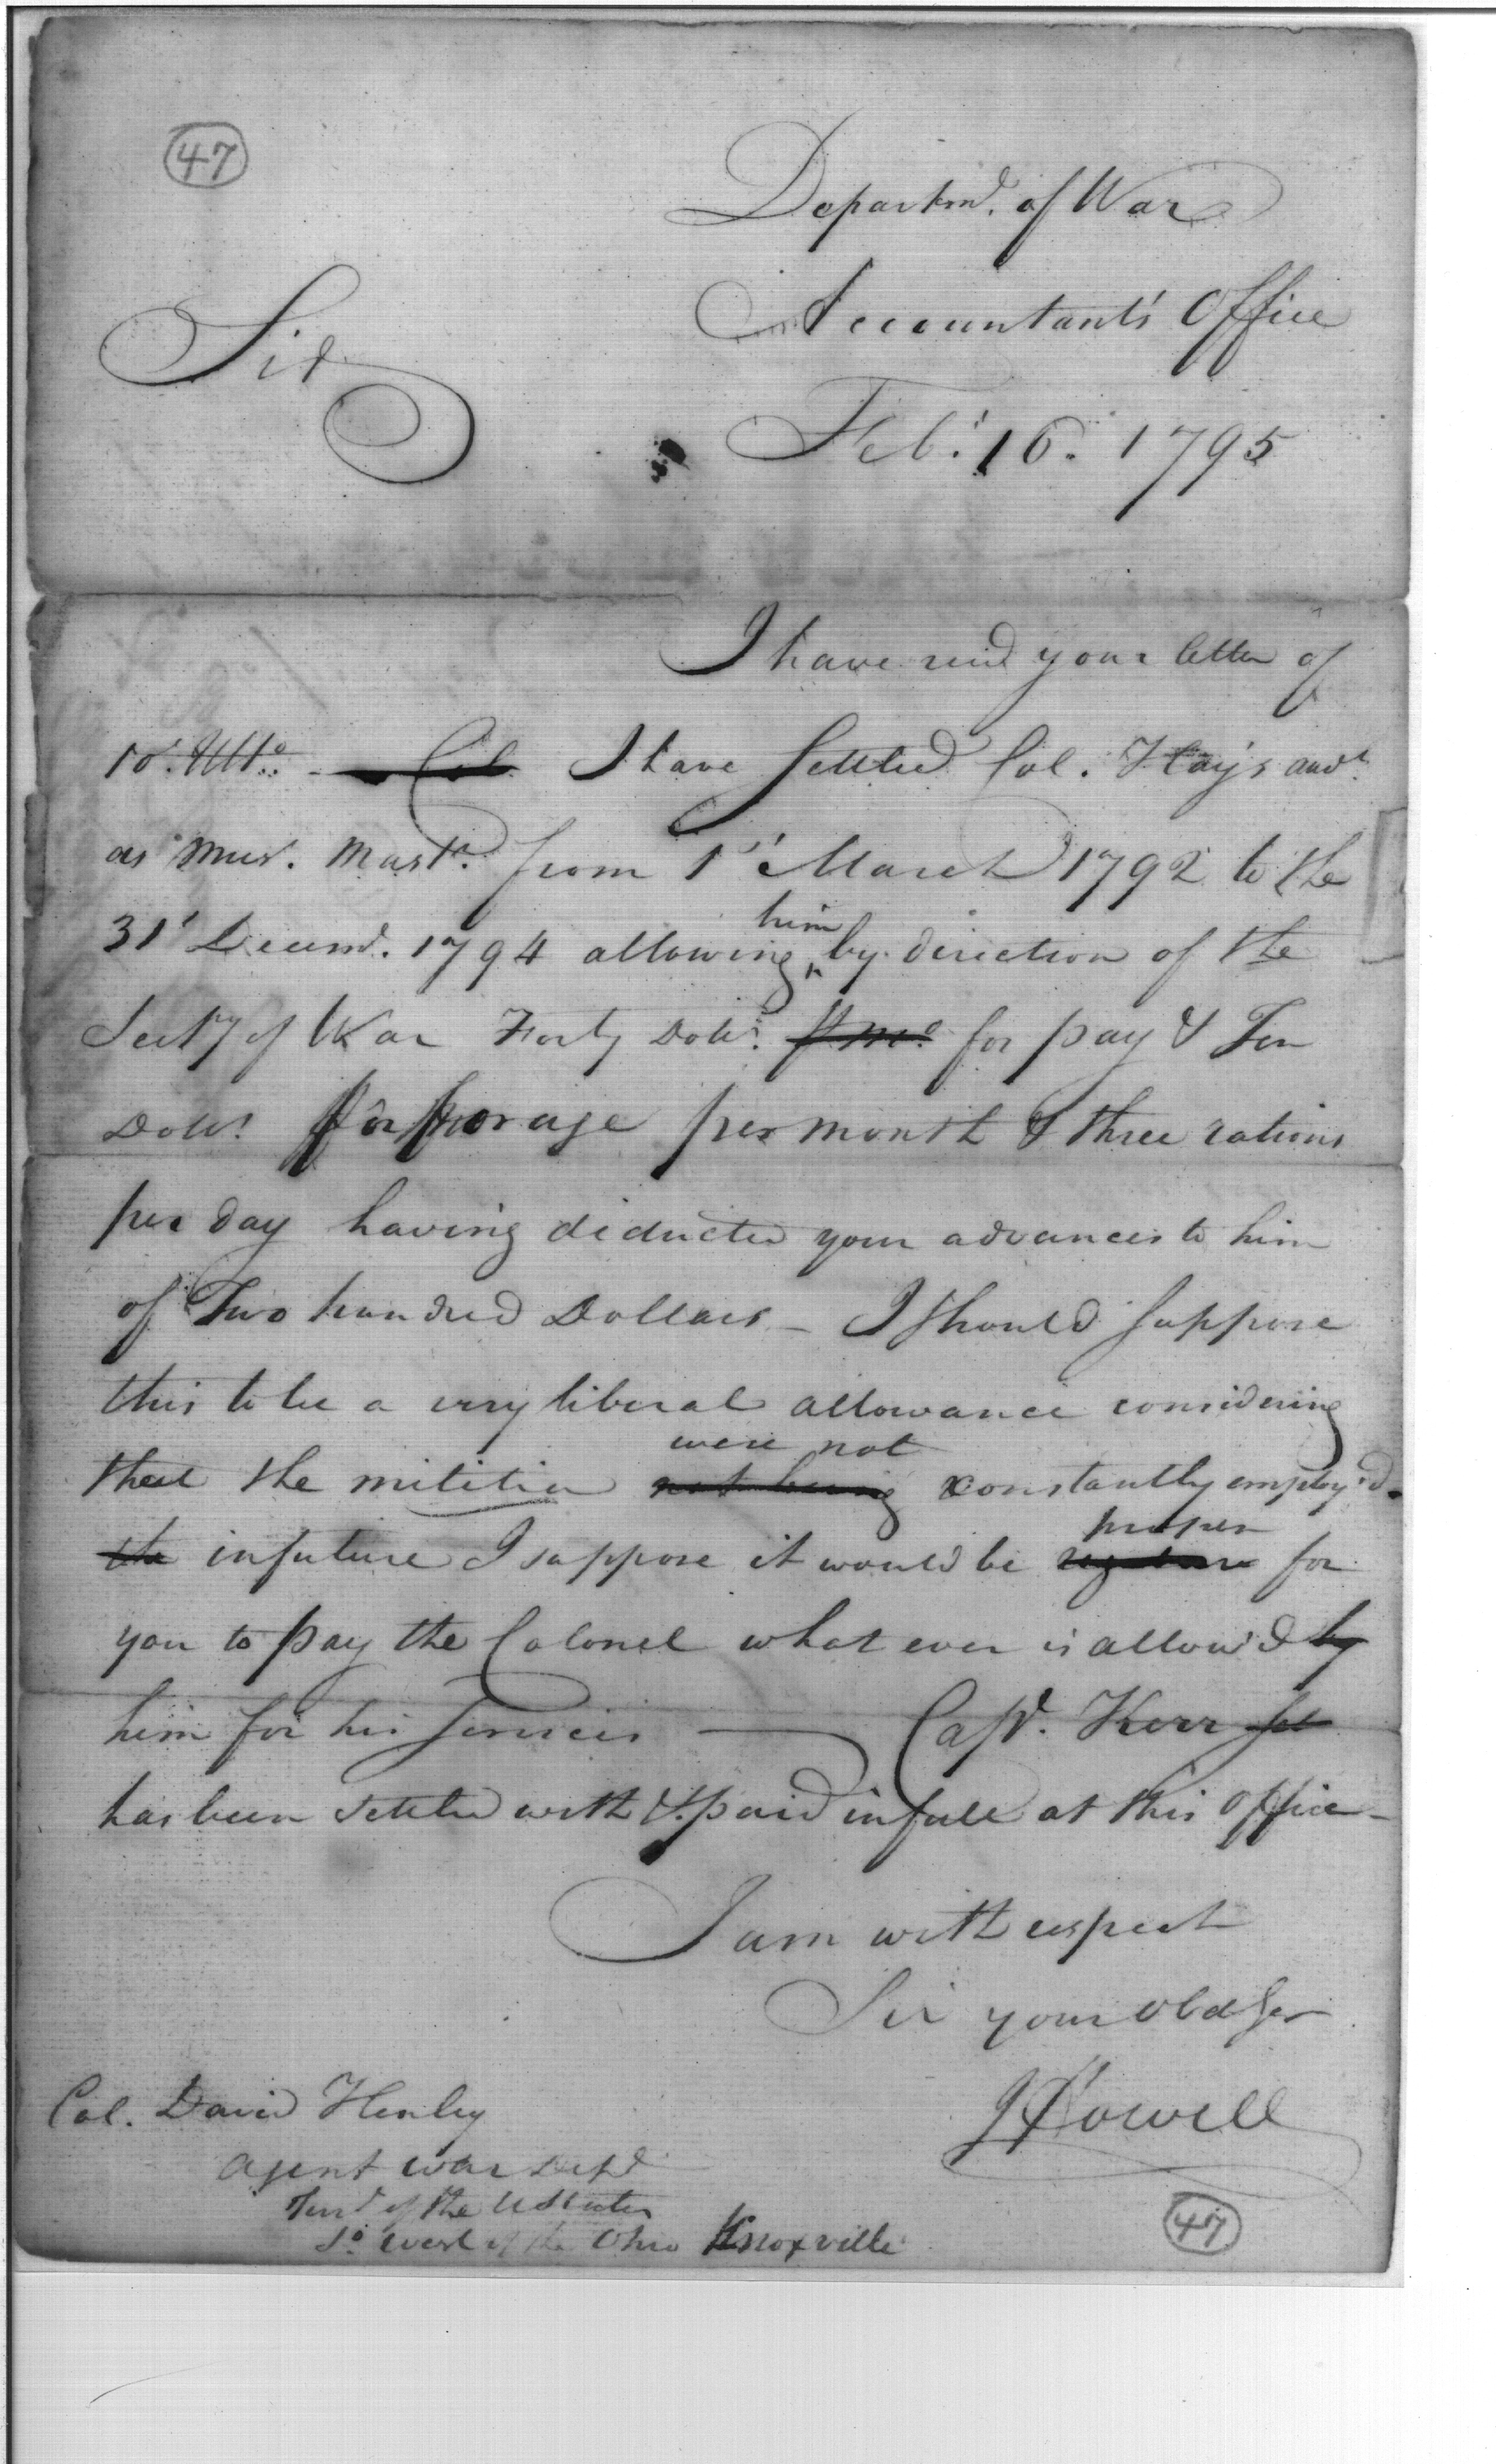 47
Departmt. of War
Accountant's Office
Sir
Feb. 16. 1795
I have recd your letter of
10. Ulto. - Col. I have Settled Col. Hay's acct.
as Mus. Mastr. from 1st March 1792 to the
him
31st Decemr. 1794 allowing ^ by direction of the
Secty of War Forty Dolls. for pay & Ten
Dolls. for forage per month & three rations
per day having deducted your advances to him
of Two hundred Dollars - I should suppose
this to be a very liberal allowance considering
were not
that the militia not being constantly employ'd.
proper
the in future I suppose it would be for
you to pay the Colonel what ever is allow'd by
him for his services — Capt. Kerr set
has been settled with & paid in full at this Office -
I am with respect
Sir your Obd Ser
J Howell
Col. David Henley
Agent War Dept
Terr. of the U States
So. West of the Ohio Knoxville
47